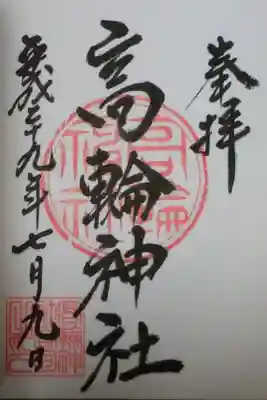 奉拝
高輪神社
平成二十九年七月九日